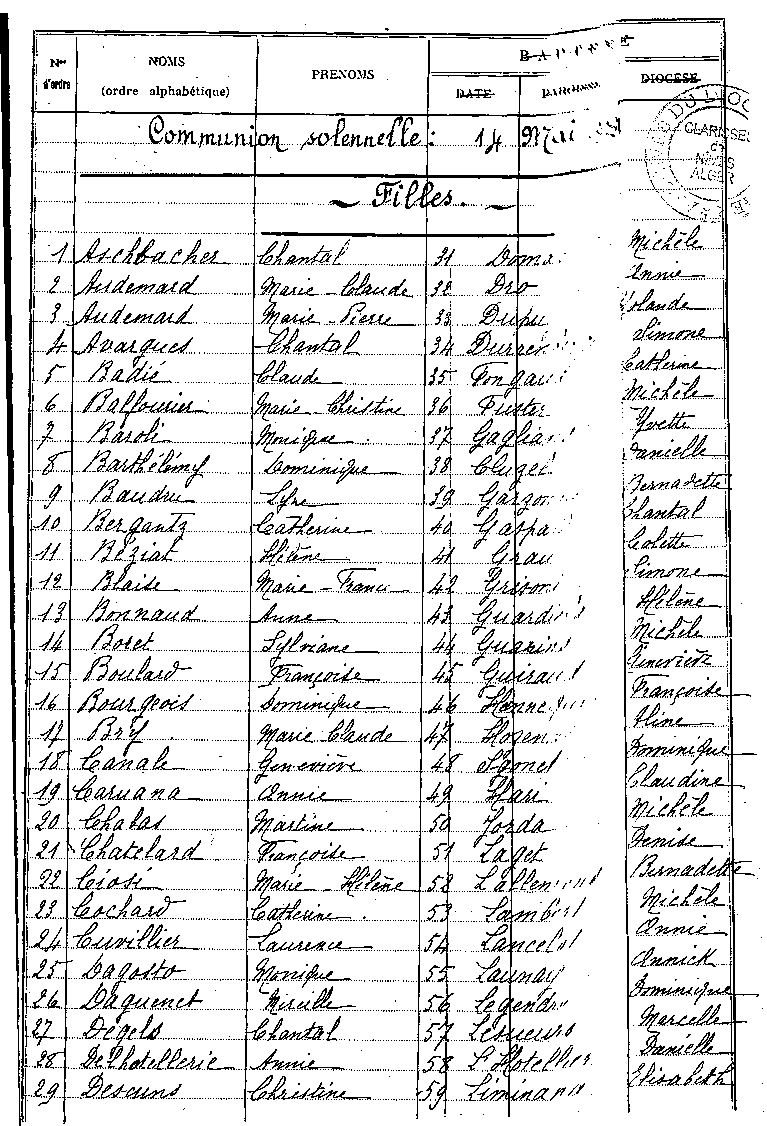 Nos d'ordre
NOMS
(ordre alphabétique)
PRENOMS
BAPTEME
DATE
PAROISSE
DIOCESE
Communion solennelle: 14 Mai
CLARISSES
et
NIMES
ALGER
Filles.
1 Aschbacher Chantal 31 Doma Michèle
2 Audemard Marie-Claude 32 Dro Annie
3 Audemard Marie-Pierre 33 Dupu Yolande
4 Avargues Chantal 34 Durren Simone
5 Badie Claude 35 Fongau Catherine
6 Balfourier Marie-Christine 36 Fuster Michèle
7 Baroli Monique 37 Gaglia Yvette
8 Barthélémy Dominique 38 Danielle
9 Baudru 39 Garzon Bernadette
10 Bergantz Catherine 40 Gaspa Chantal
11 Béziat Hélène 41 Grau Colette
12 Blaise Marie-Franc 42 Grison Simone
13 Bonnaud Anne 43 Guardi Hélène
14 Boret Sylviane 44 Guarin Michèle
15 Boulard Françoise 45 Guiraud Geneviève
16 Bourgeois Dominique 46 Hanne Françoise
17 Bry Marie Claude 47 Hozen Aline
18 Canale Geneviève 48 Dominique
19 Caruana Annie 49 Claudine
20 Chabas Martine 50 Jorda Michèle
21 Chatelard Françoise 51 Laget Denise
22 Ciosi Marie-Hélène 52 Lallemend Bernadette
23 Cochard Catherine 53 Lambert Michèle
24 Cuvillier Laurence 54 Lancelot Annie
25 Dagosto Monique 55 Launay Annick
26 Daguenet Mireille 56 Legendre Dominique
27 Dégelo Chantal 57 Lesueurs Marcelle
28 De Lhotellerie Annie 58 L'Hotellier Danielle
29 Descuns Christine 59 Liminana Elisabeth